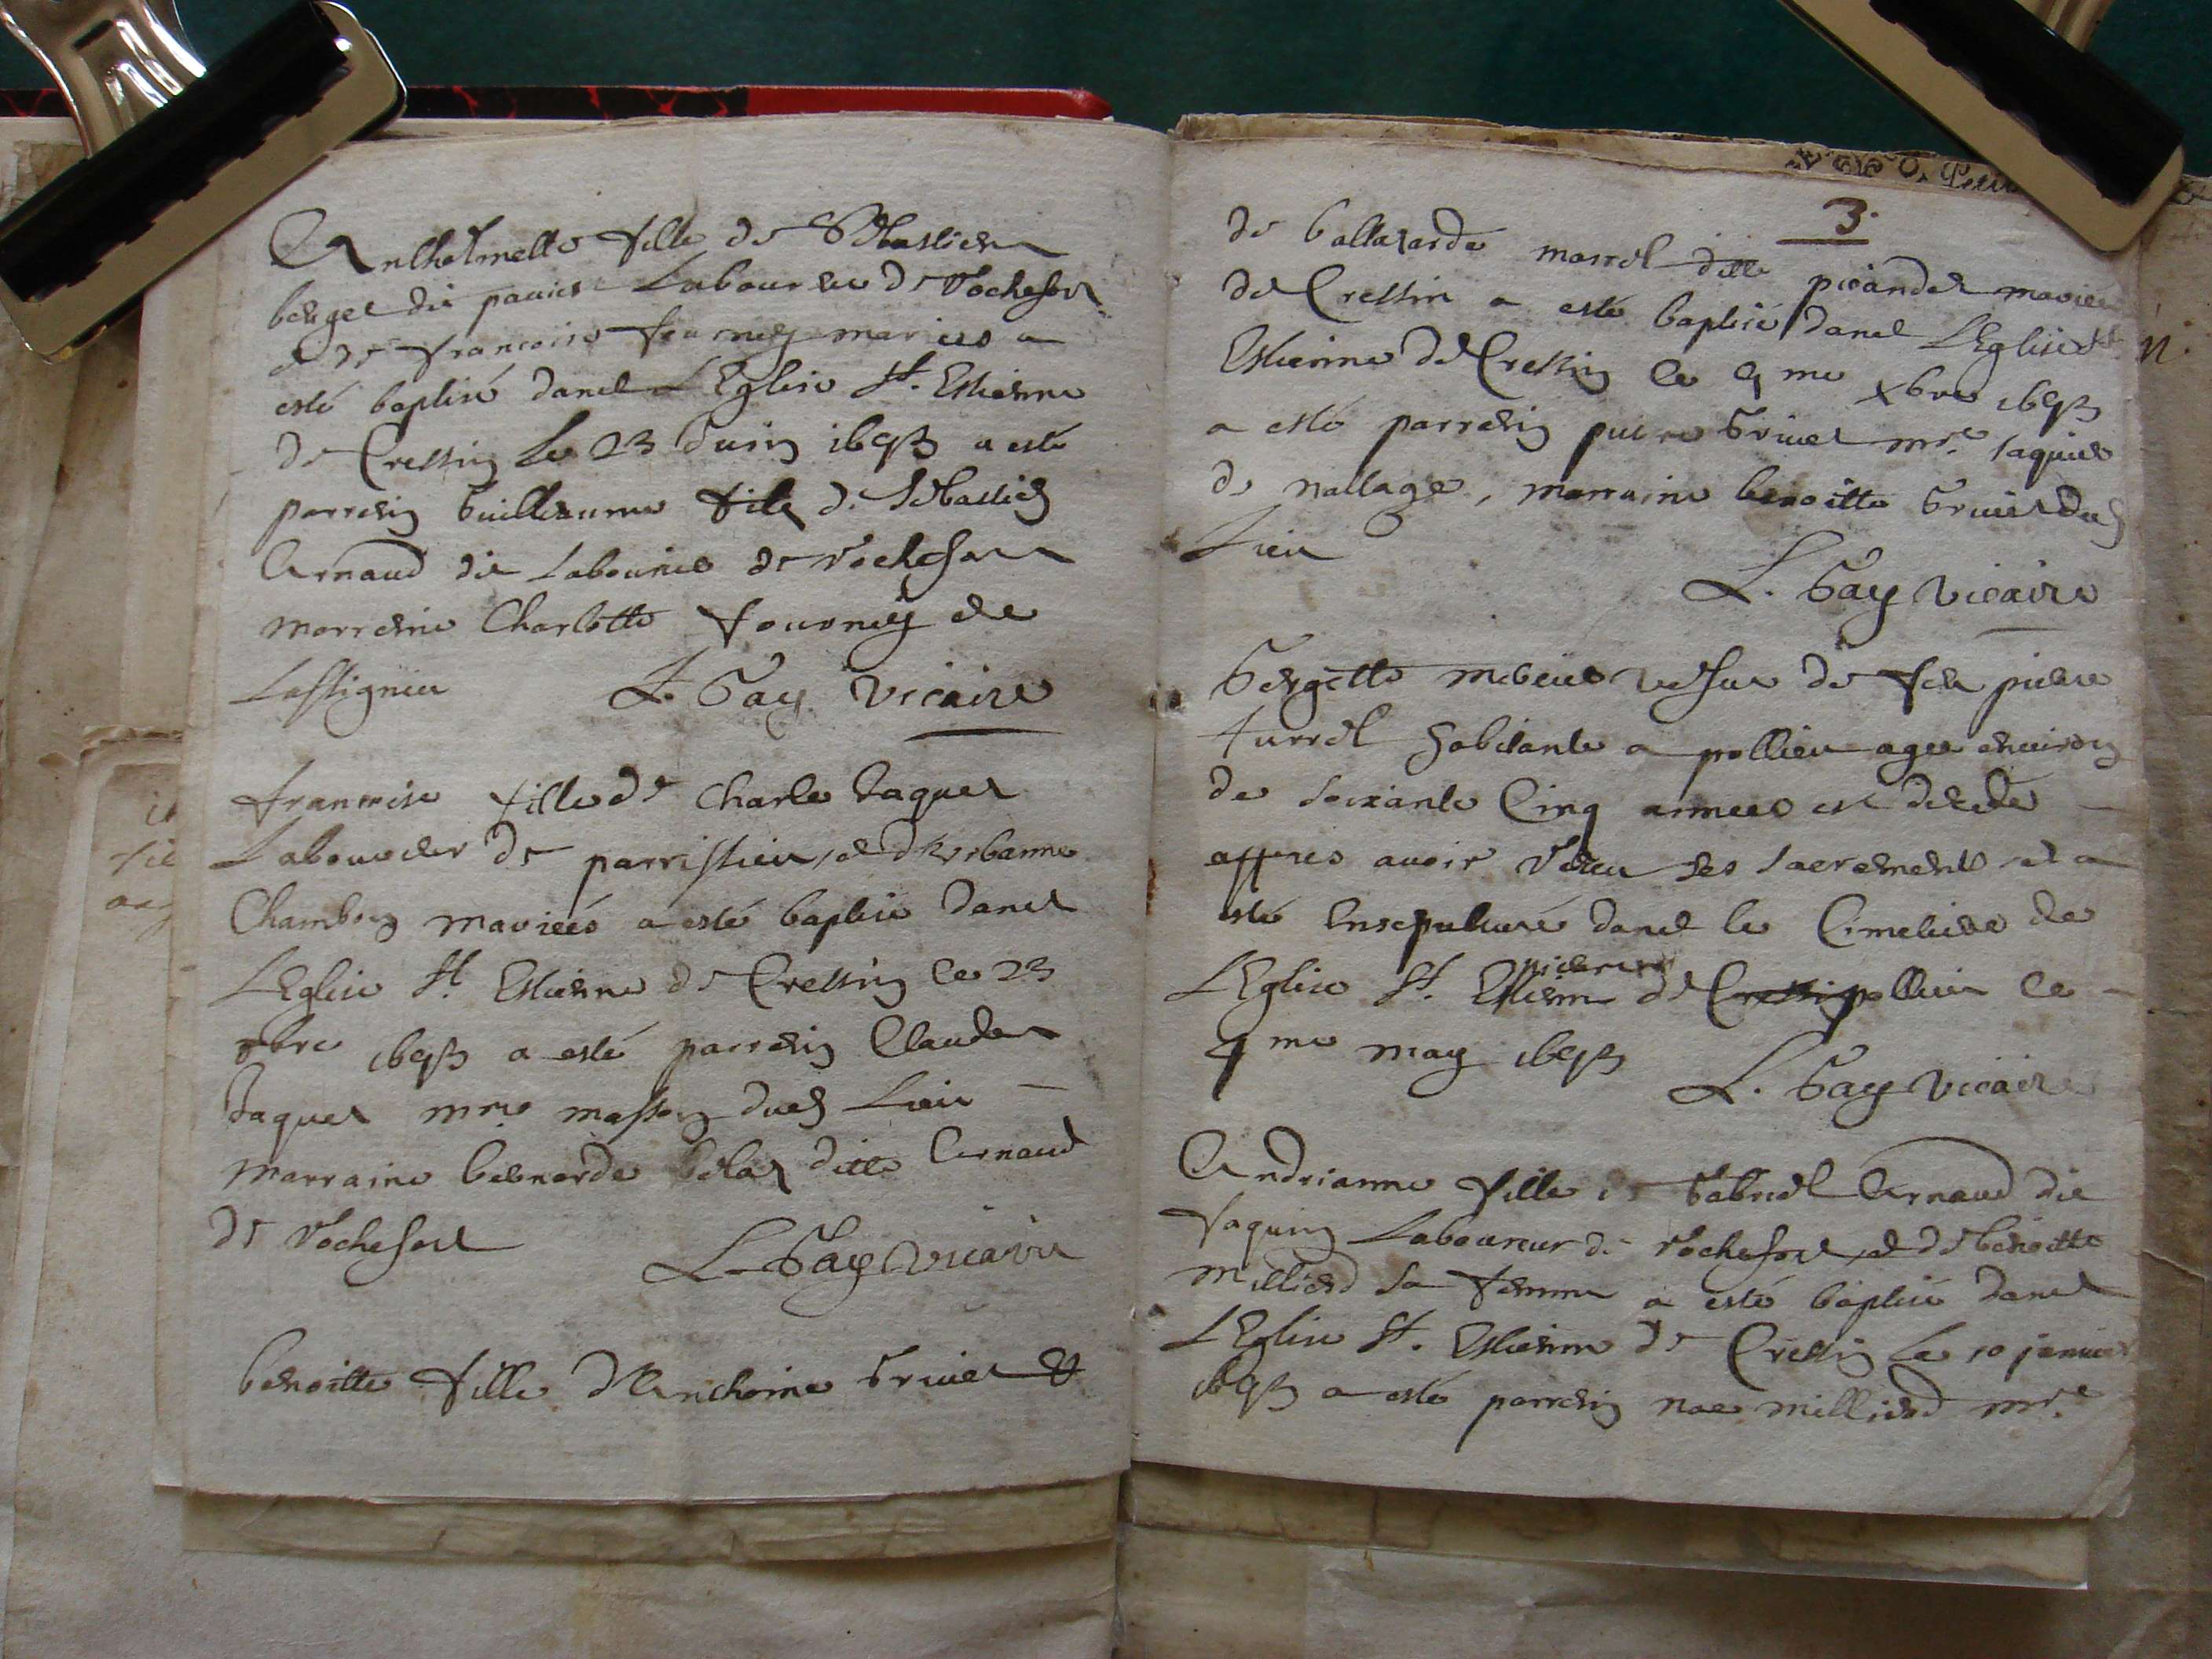 Anthelmette fille de Sebastien
berget dit pavier Laboureur de Rochefort
et de francoise fourney mariés a
esté baptisé dans L'Eglise St. Estienne
de Cressin Le 23 Juin 1693 a esté
parrein Guillaume fils de Sebastien
Arnaud dit Labourie de Rochefort
marreine Charlotte fourney de
Lassignieu L. Gay vicaire
francoise fille de Charle Jaquet
Laboureur de parrissieu, et d'urbanne
Chambon mariéés a esté baptise dans
L'Eglise St Estienne de Cressin le 23
bre 1693 a esté parrein Claude
Jaquet mre masson dud Lieu
marraine bernarde ditte Arnaud
de Rochefort L. Gay vicaire
benoitte fille d'Anthoine Grivet &
3.
de baltazarde marrel ditte mariée
de Cressin a esté baptisé dans L'Eglise St
Estienne de Cressin le 9 me Xbre 1693
a esté parrein pierre Grivet mre
de nattage, marraine benoitte Grivet dud
Lieu
L. Gay vicaire
vefve de feu pierre
turrel habitante a pollieu agee environ
de soixante Cinq annees est decede
appres avoir Receu ses sacrements et a
esté Ensepulturé dans le Cimetiere de
L'Eglise St. Estienne de Cressin pollieu le
9 me may 1693 L. Gay vicaire
Andrianne fille de Gabriel Arnaud dit
faquin Laboureur de Rochefort et de benoitte
milliend sa femme a esté baptisé dans
L'Eglise St. Estienne de Cressin Le 10 janvier
1693 a esté parrein noe milliend mre